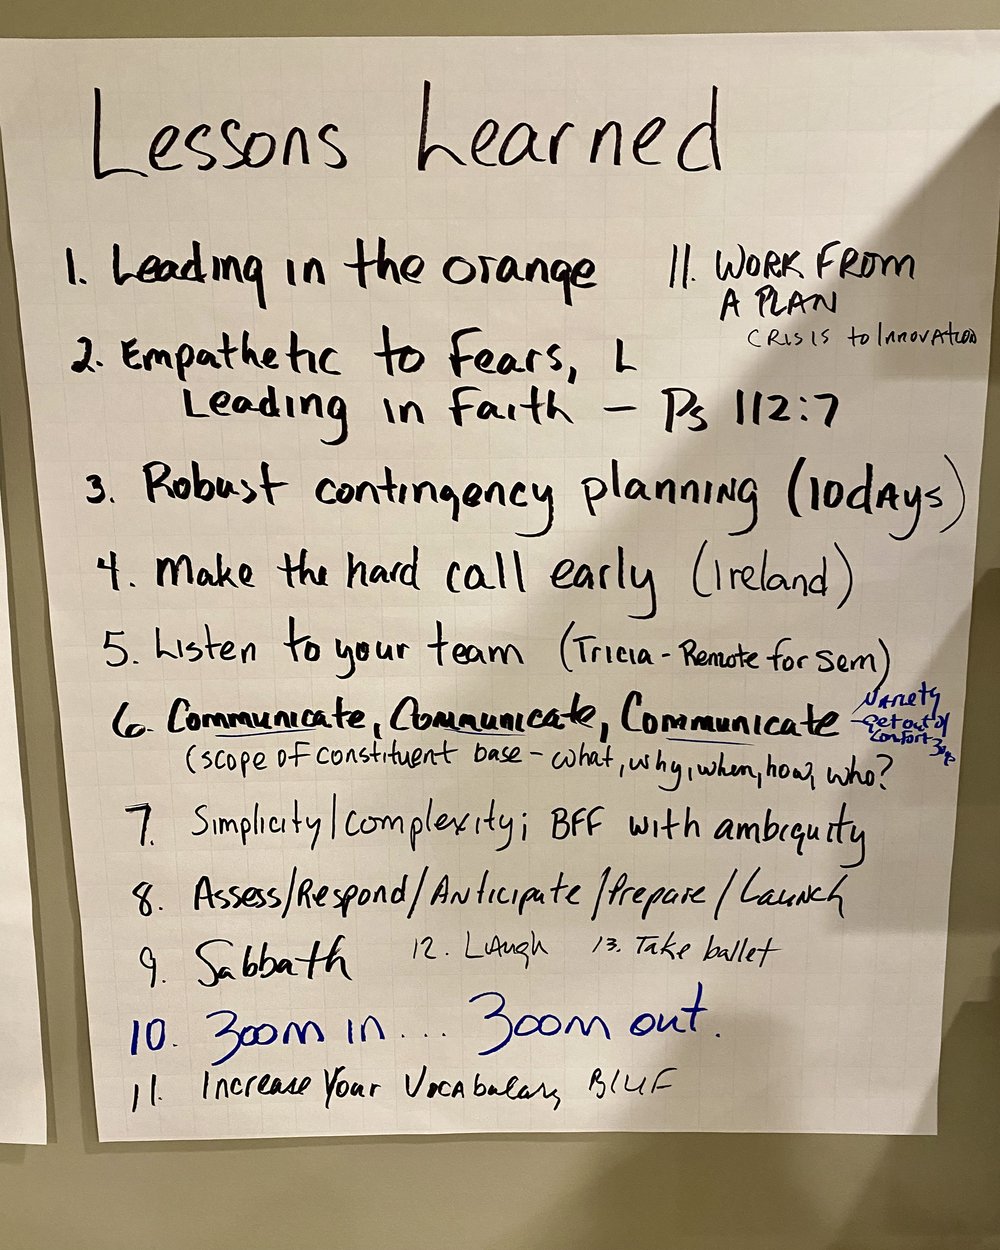 Lessons Learned
1. Leading in the orange
11. WORK FROM
A PLAN
CRISIS to InnovATION
2. Empathetic to Fears, L
Leading in Faith – Ps 112:7
3. Robust contingency planning (10 days)
4. Make the hard call early (Ireland)
5. Listen to your team (Tricia - Remote for Sem)
6. Communicate, Communicate, Communicate
Variety
- Get out of
comfort zone
(scope of constituent base – what, why, when, how, who?
7. Simplicity/complexity; BFF with ambiguity
8. Assess/Respond/Anticipate/Prepare/Launch
9. Sabbath
12. Laugh 13. Take ballet
10. Zoom in... Zoom out.
11. Increase Your Vocabulary BLUF